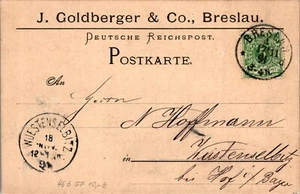 J. Goldberger & Co., Breslau.
DEUTSCHE REICHSPOST.
POSTKARTE.
BRESLAU
An
Herrn
N Hoffmann
in Wüstenselbitz
bei Hof i/ Bayern
WUESTENSELBITZ
18
NOV.